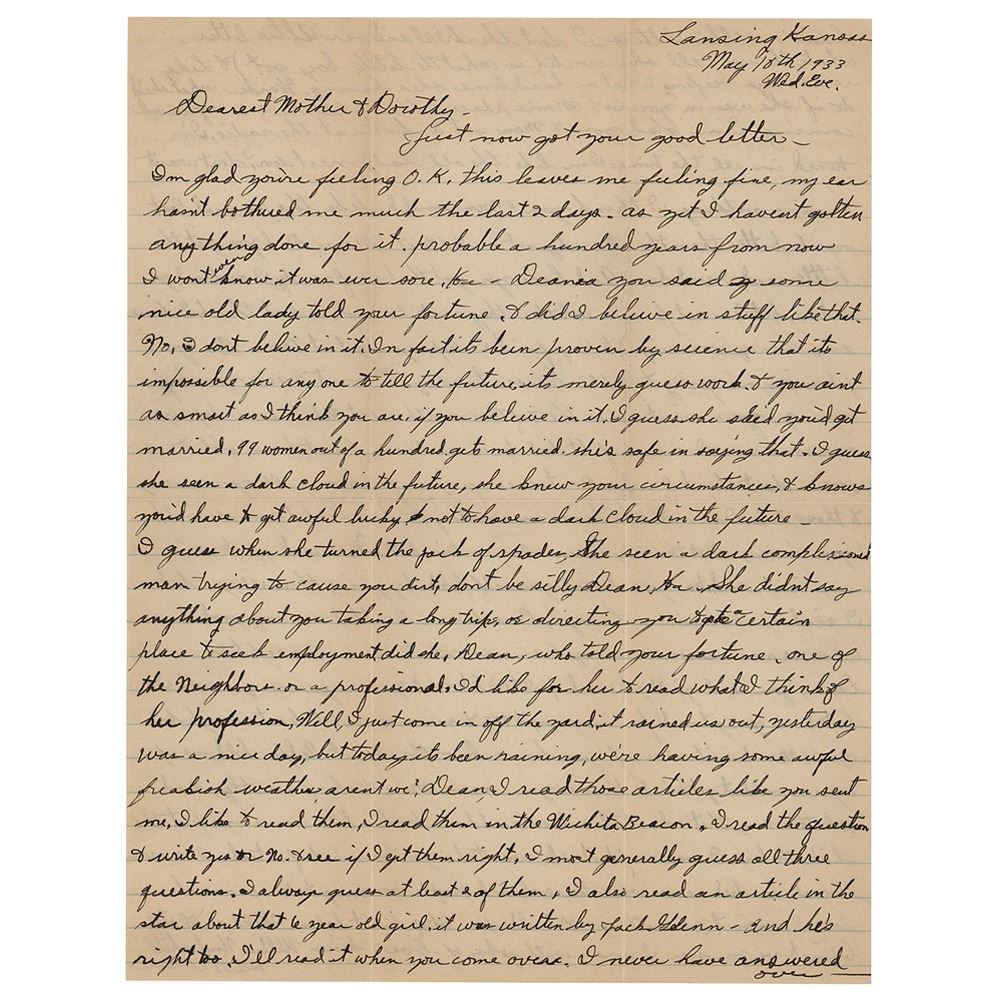 Lansing Kansas
May 10th 1933
Wed. Eve.
Dearest Mother & Dorothy -
Just now got your good letter -
I'm glad you're feeling O.K. this leaves me feeling fine, my ear
hasn't bothered me much the last 2 days. as yet I havent gotten
anything done for it. probable a hundred years from now
I wont even know it was ever sore. Ha - Deania you said some
nice old lady told your fortune. & did I believe in stuff like that.
No, I dont believe in it. In fact its been proven by science that its
impossible for any one to tell the future, its merely guess work. & you aint
as smart as I think you are, if you believe in it. I guess she said you'd get
married, 99 women out of a hundred get married. she's safe in saying that. I guess
she seen a dark cloud in the future, she knew your circumstances, & knows
you'd have to get awful lucky not to have a dark cloud in the future -
I guess when she turned the jack of spades, She seen a dark complexioned
man trying to cause you dirt, dont be silly Dean, Ha. She didn't say
anything about you taking a long trip, or directing you to a certain
place to seek employment did she, Dean, who told your fortune, one of
the Neighbors or a professional. I'd like for her to read what I think of
her profession, Well, I just come in off the yard, it rained us out, yesterday
was a nice day, but today its been raining, we're having some awful
freakish weather, arent we? Dean, I read those articles like you sent
me, I like to read them, I read them in the Wichita Beacon. I read the question
& write yes or No. & see if I get them right, I most generally guess all three
questions. I always guess at least 2 of them, I also read an article in the
star about that 6 year old girl. it was written by Jack Glenn - and he's
right too. I'll read it when you come over. I never have answered
over